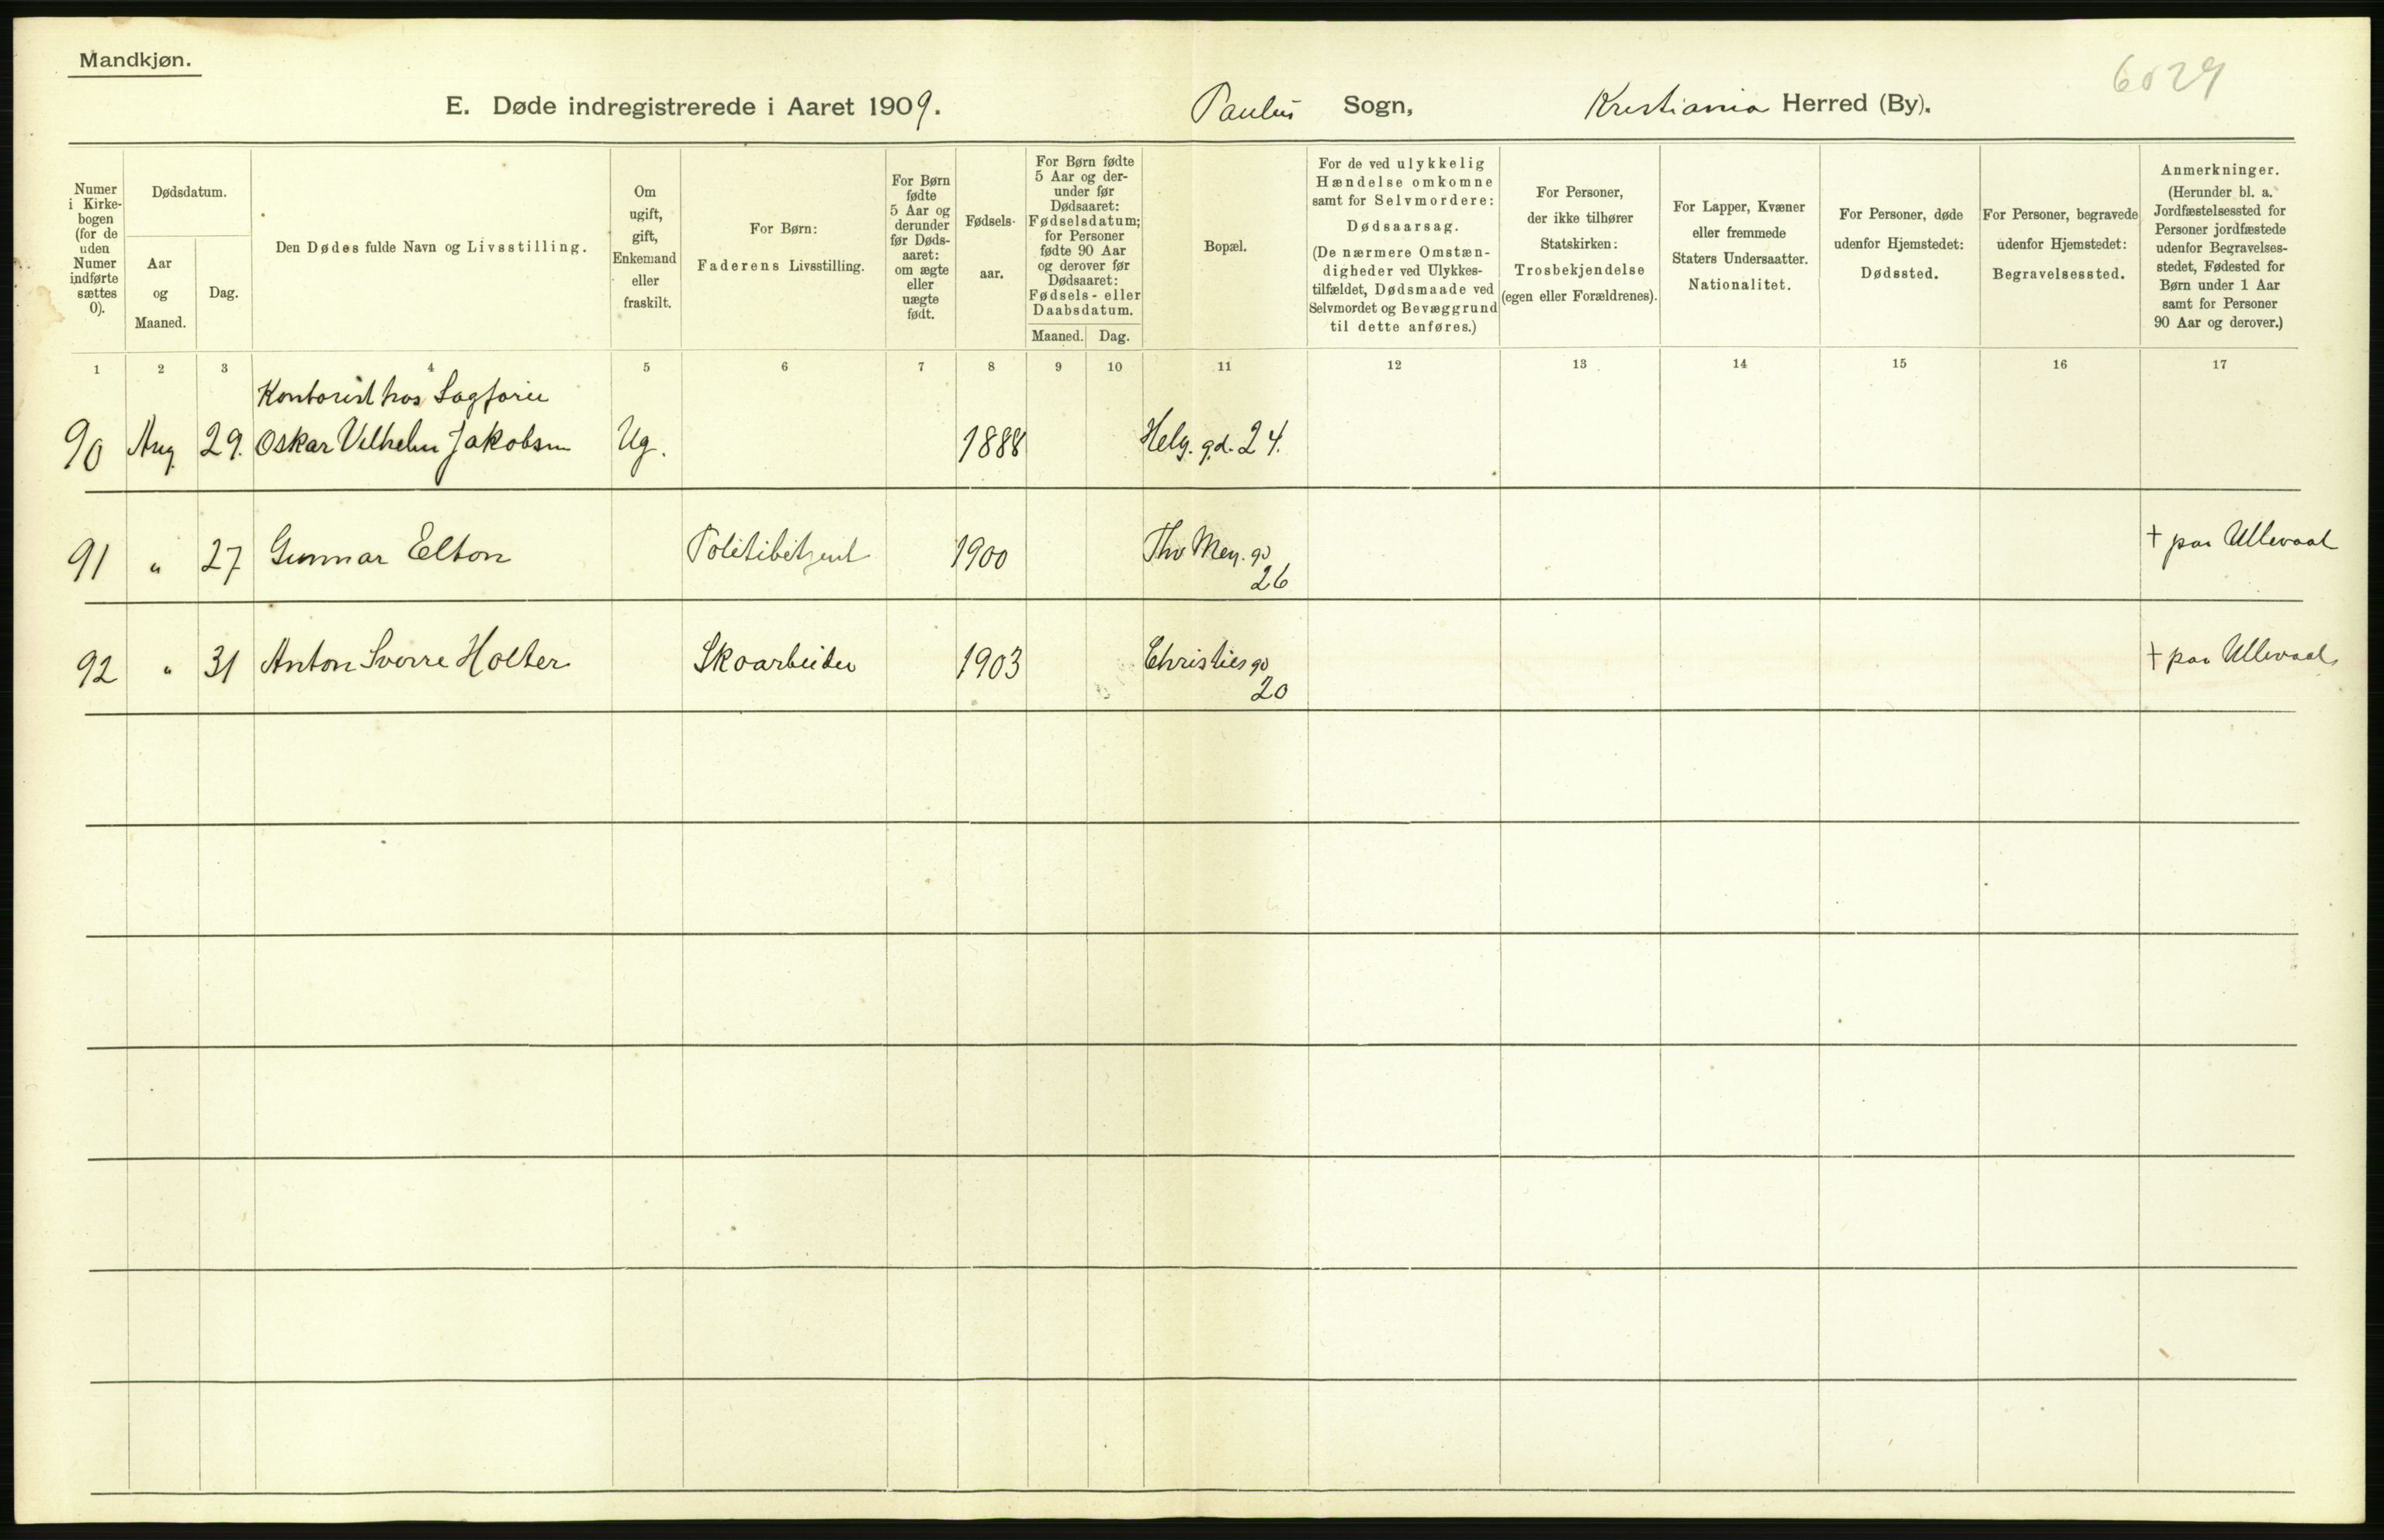 Mandkjøn.
6029
E. Døde indregistrerede i Aaret 1909. Paulus Sogn, Kristiania Herred (By).
Numer i Kirke-bogen (for de uden Numer indførte sættes 0).
Dødsdatum.
Aar og Maaned.
Dag.
Den Dødes fulde Navn og Livsstilling.
Om ugift, gift, Enkemand eller fraskilt.
For Børn: Faderens Livsstilling.
For Børn fødte 5 Aar og derunder før Døds-aaret: om ægte eller uægte født.
Fødsels-aar.
For Børn fødte 5 Aar og der-under før Dødsaaret: Fødselsdatum; for Personer fødte 90 Aar og derover før Dødsaaret: Fødsels- eller Daabsdatum.
Maaned. Dag.
Bopæl.
For de ved ulykkelig Hændelse omkomne samt for Selvmordere: Dødsaarsag. (De nærmere Omstæn-digheder ved Ulykkes-tilfældet, Dødsmaade ved Selvmordet og Bevæggrund til dette anføres.)
For Personer, der ikke tilhører Statskirken: Trosbekjendelse (egen eller Forældrenes).
For Lapper, Kvæner eller fremmede Staters Undersaatter. Nationalitet.
For Personer, døde udenfor Hjemstedet: Dødssted.
For Personer, begravede udenfor Hjemstedet: Begravelsessted.
Anmerkninger. (Herunder bl. a. Jordfæstelsessted for Personer jordfæstede udenfor Begravelses-stedet, Fødested for Børn under 1 Aar samt for Personer 90 Aar og derover.)
1 2 3 4 5 6 7 8 9 10 11 12 13 14 15 16 17
Kontorist hos Sagfører
90 Aug. 29. Oskar Vilhelm Jakobsen Ug. 1888 Helg. gd. 24.
91 " 27 Gunnar Elton Politibetjent 1900 Thv Mey. gd + paa Ullevaal
26
92 " 31 Anton Sverre Holter Skoarbeider 1903 Christies gd + paa Ullevaal
20